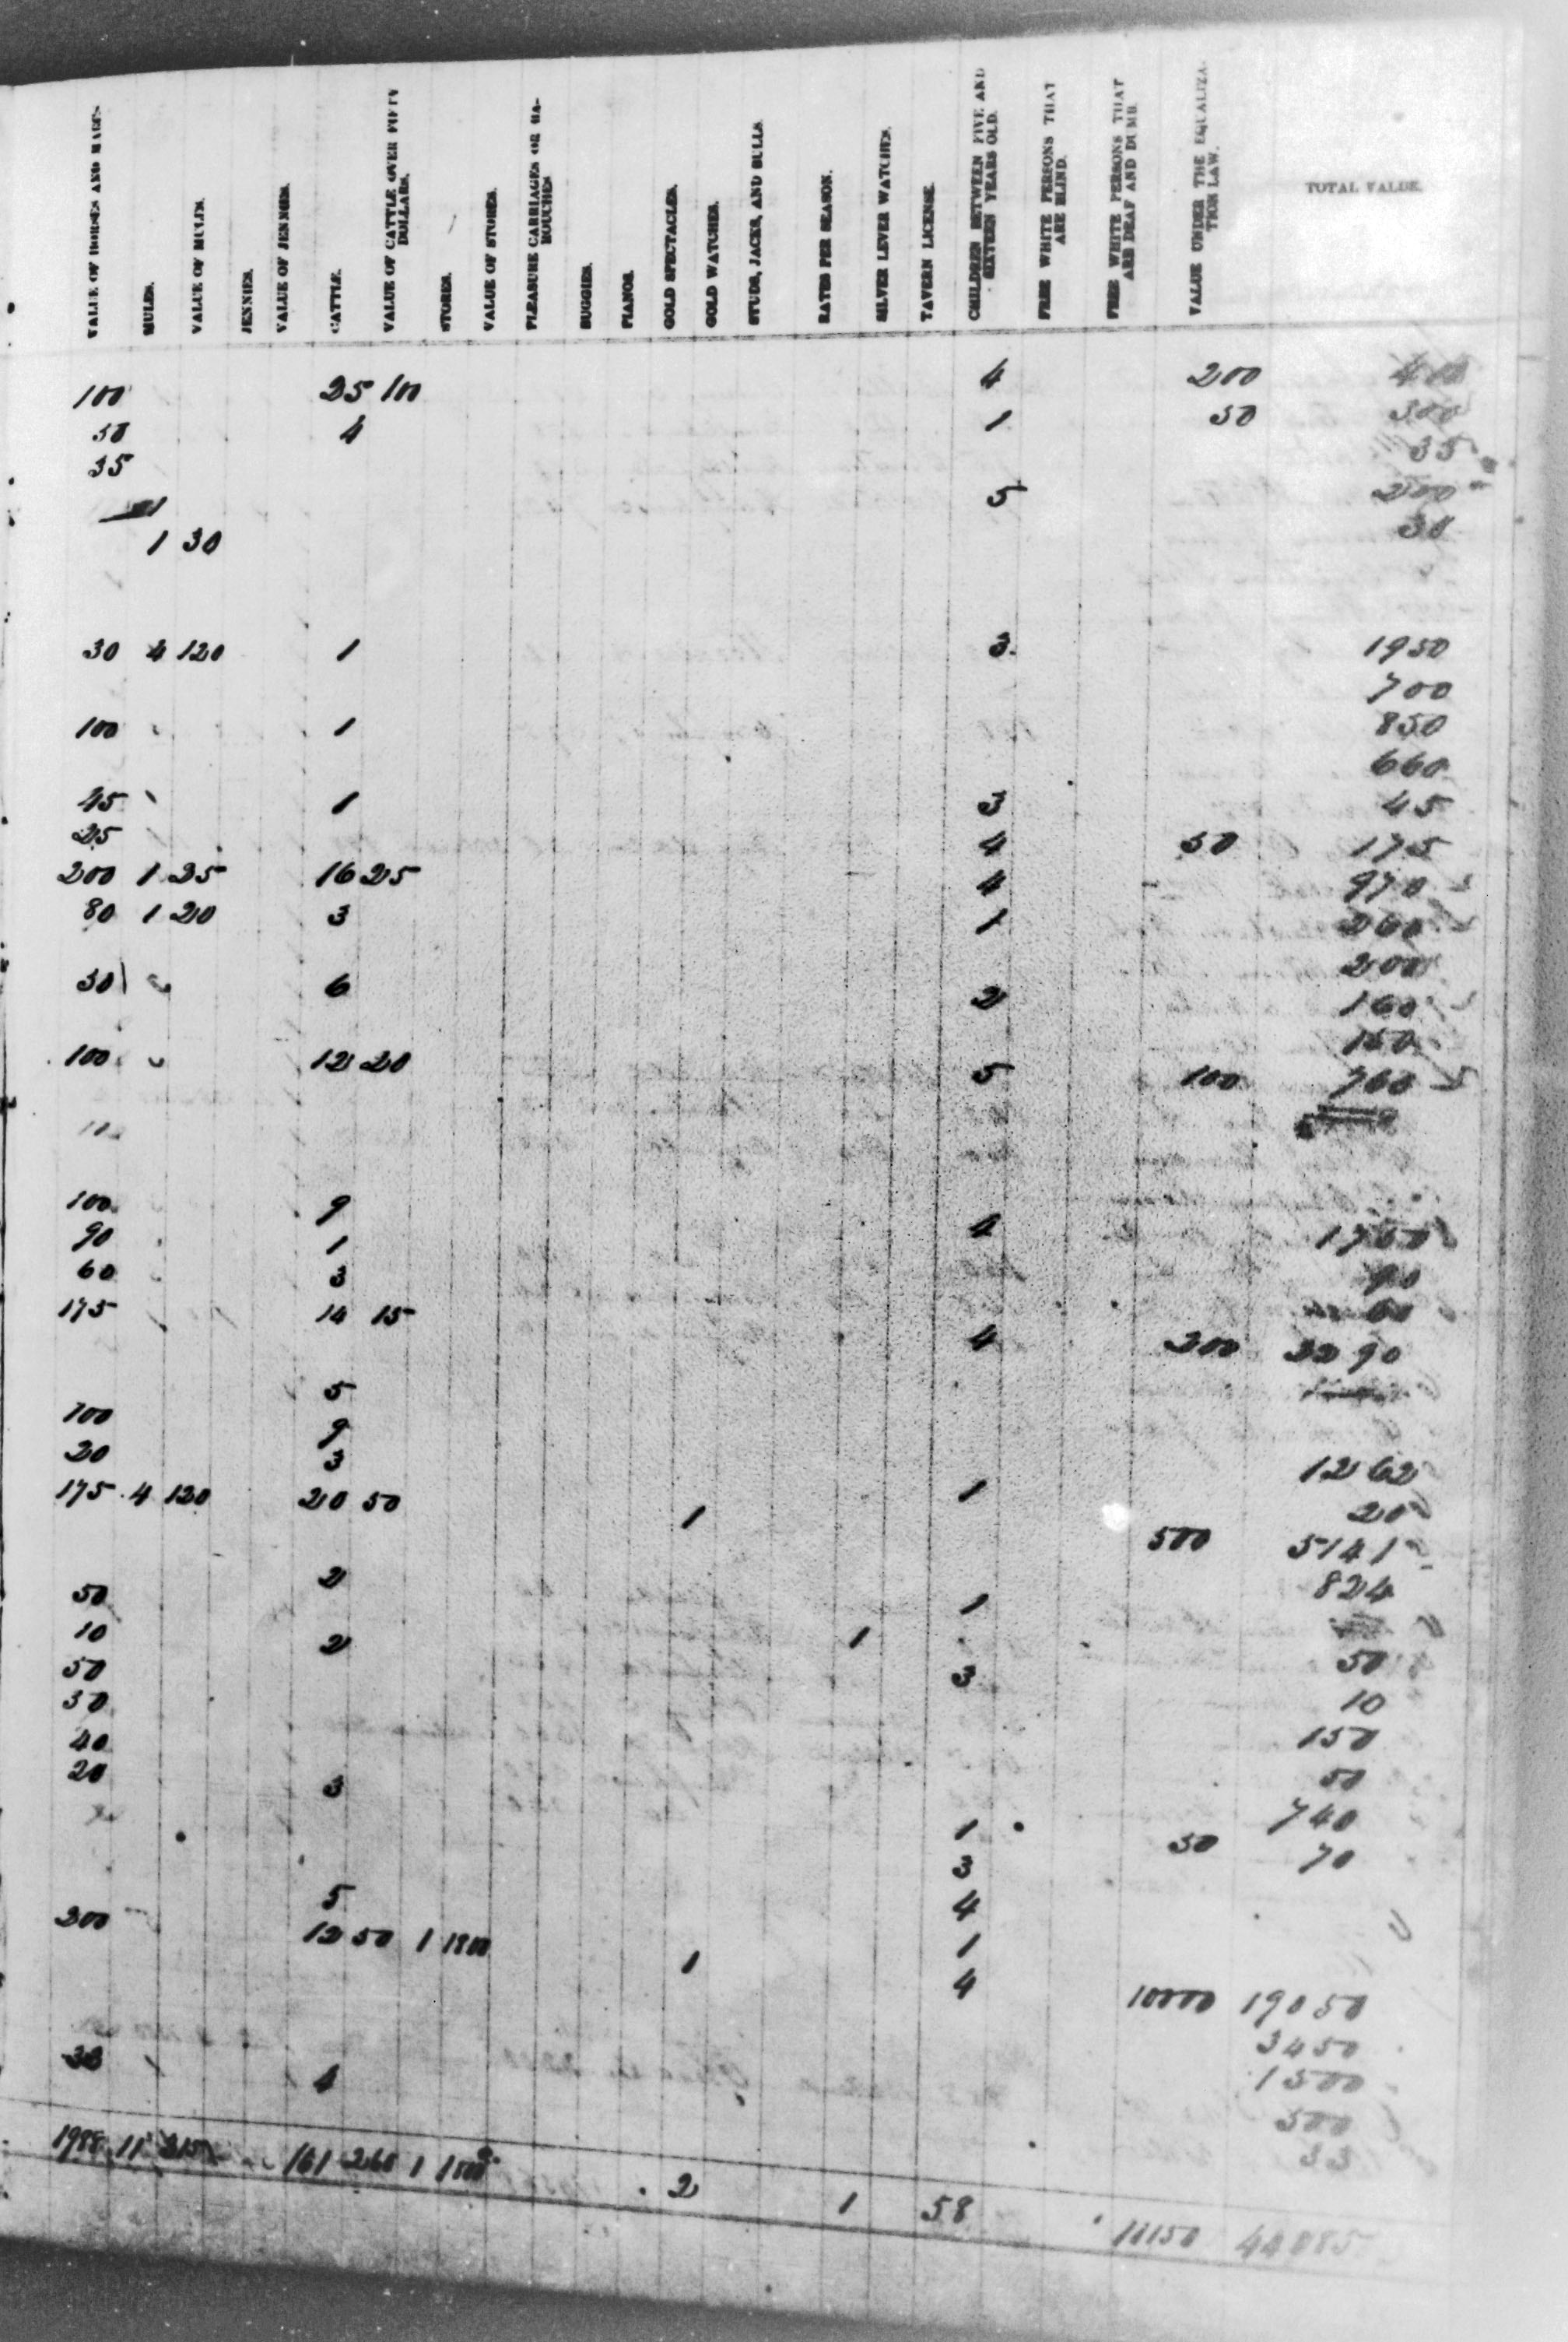 VALUE OF HORSES AND MARES
MULES.
VALUE OF MULES.
JENNIES.
VALUE OF JENNIES.
CATTLE.
VALUE OF CATTLE OVER FIFTY DOLLARS.
STORES.
VALUE OF STORES.
PLEASURE CARRIAGES OR BA-ROUCHES
BUGGIES.
PIANOS.
GOLD SPECTACLES.
GOLD WATCHES.
STUDS, JACKS, AND BULLS.
RATES PER SEASON.
SILVER LEVER WATCHES.
TAVERN LICENSE.
CHILDREN BETWEEN FIVE AND SIXTEEN YEARS OLD.
FREE WHITE PERSONS THAT ARE BLIND.
FREE WHITE PERSONS THAT ARE DEAF AND DUMB.
VALUE UNDER THE EQUALIZA-TION LAW.
TOTAL VALUE.
100 25 100 4 200 400
50 4 1 50 300
35 35
5 200
1 30 30
30 4 120 1 3 1950
700
100 1 850
660
45 1 3 45
25 4 50 175
200 1 25 16 25 4 970
80 1 20 3 1 260
200
30 6 2 160
150
100 12 20 5 100 760
100 9 4 1760
90 1 90
60 3 60
175 14 15 4 200 2290
5
100 9 1262
20 3 20
175 4 120 20 50 1 1 500 5141
824
2
50 1
10 2 1 50
50 3 10
30 150
40 50
20 3 740
1 50 70
3
5 4
200 12 50 1 1800 1 1
4 10000 19050
3450
1500
33 4 500
33
1988 11 315 161 260 1 1800 2 1 58 11150 44085